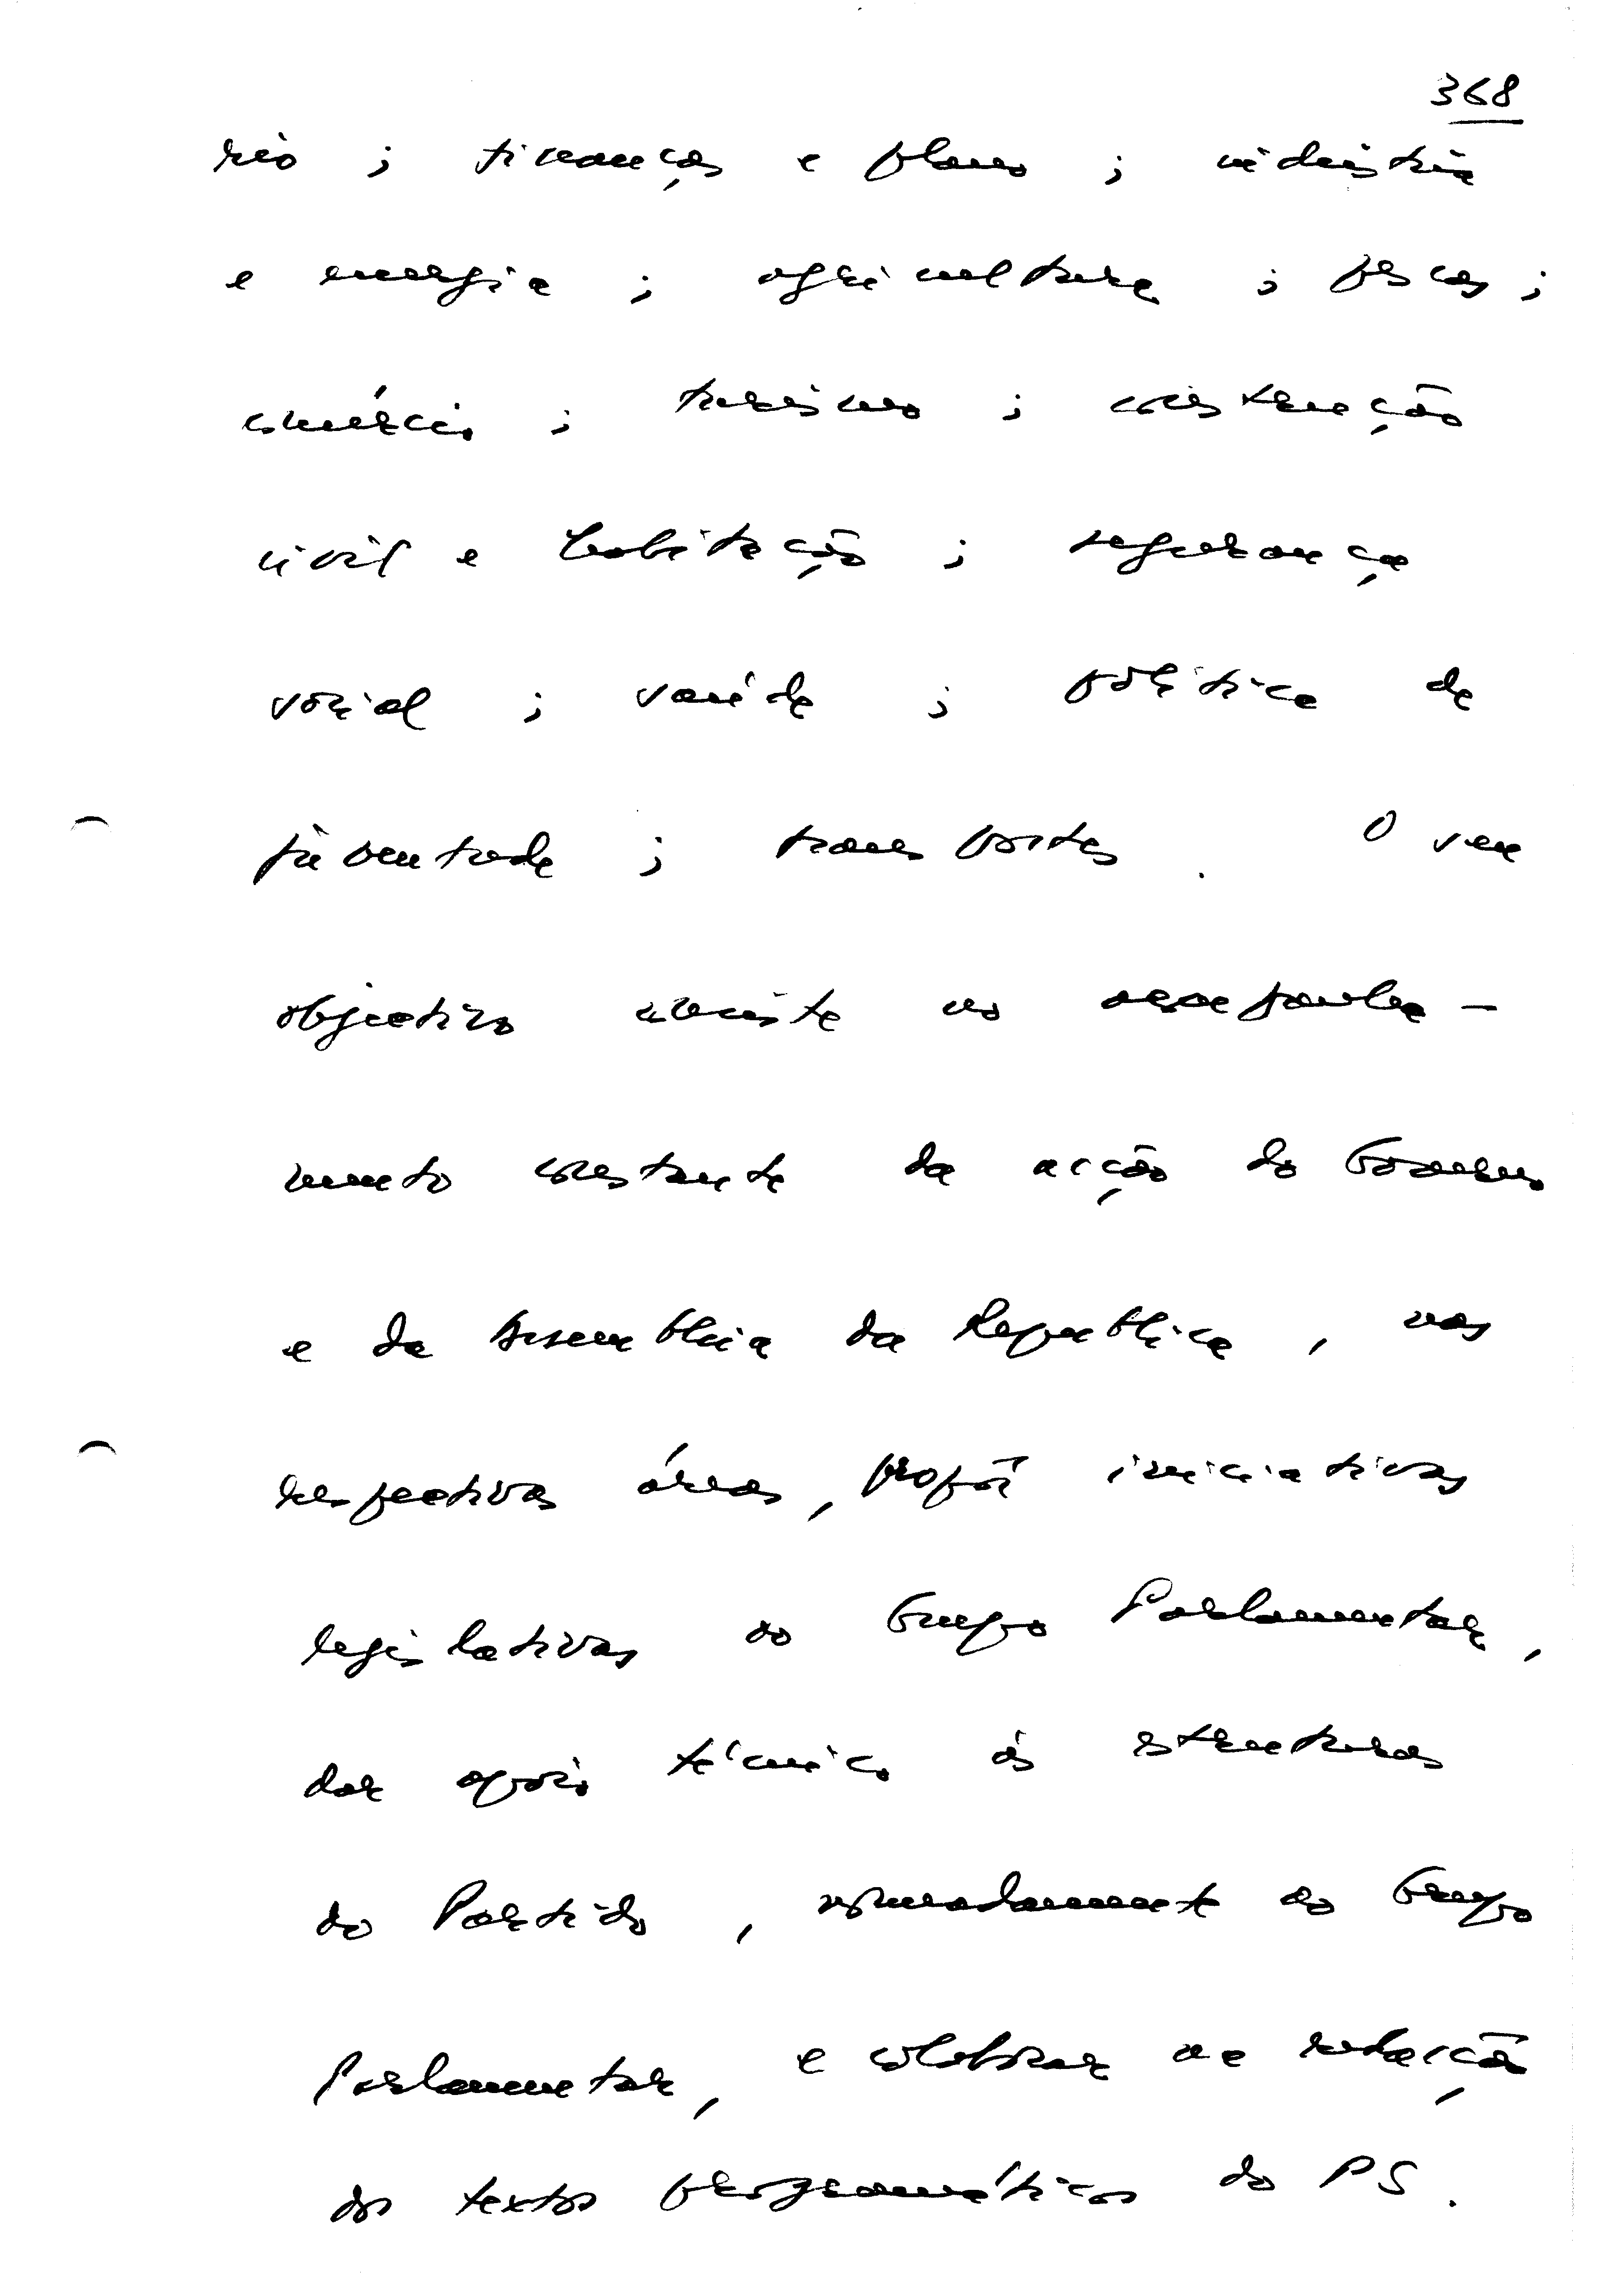 368
rio ; finanças e plano ; indústria
e energia ; agricultura ; pescas ;
comércio ; turismo ; construção
civil e habitação ; segurança
social ; saúde ; política de
juventude ; transportes . O seu
objectivo consiste no acompanha-
mento constante da acção do Governo
e da Assembleia da República , nas
respectivas áreas, propôr iniciativas
legislativas ao Grupo Parlamentar,
dar apoio técnico às estruturas
do Partido , nomeadamente ao Grupo
Parlamentar, e colaborar na redacção
dos textos programáticos do PS .